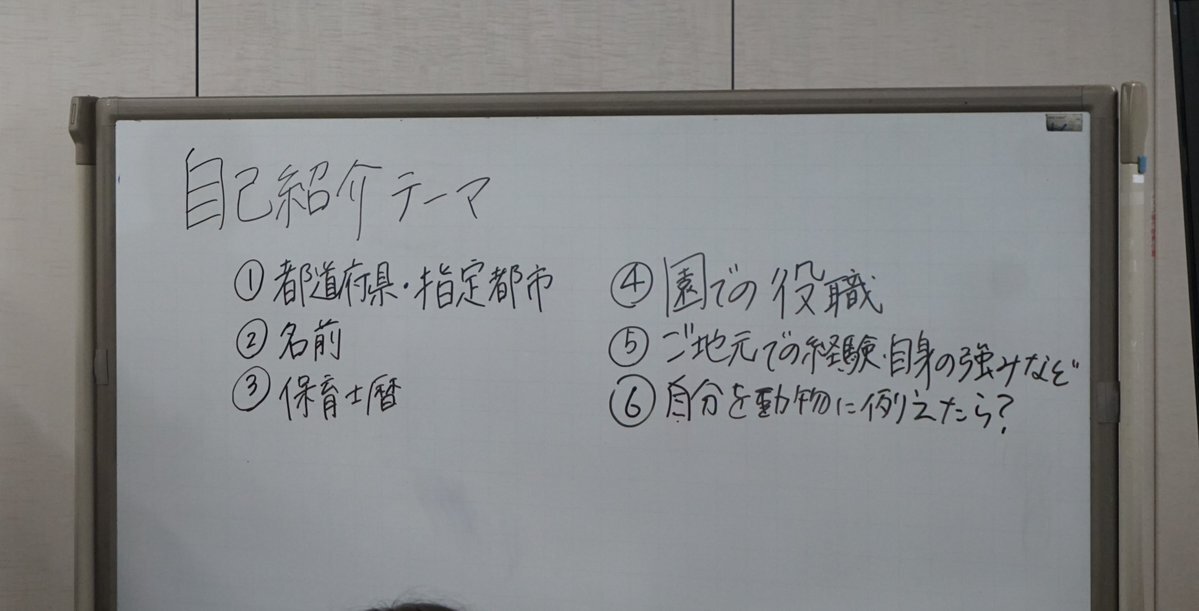 自己紹介テーマ
①都道府県・指定都市
②名前
③保育士暦
④園での役職
⑤ご地元での経験・自身の強みなど
⑥自分を動物に例えたら?